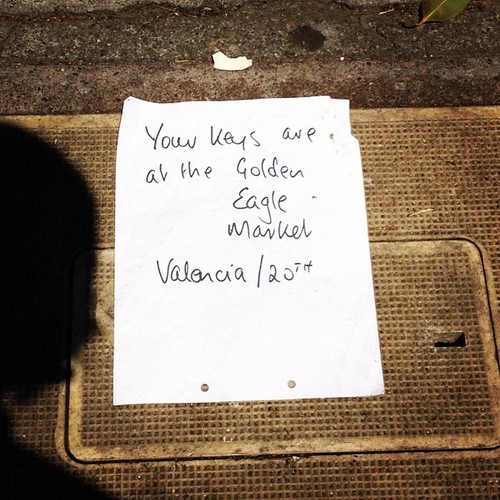 Your keys are
at the Golden
Eagle
Market
Valencia/20TH